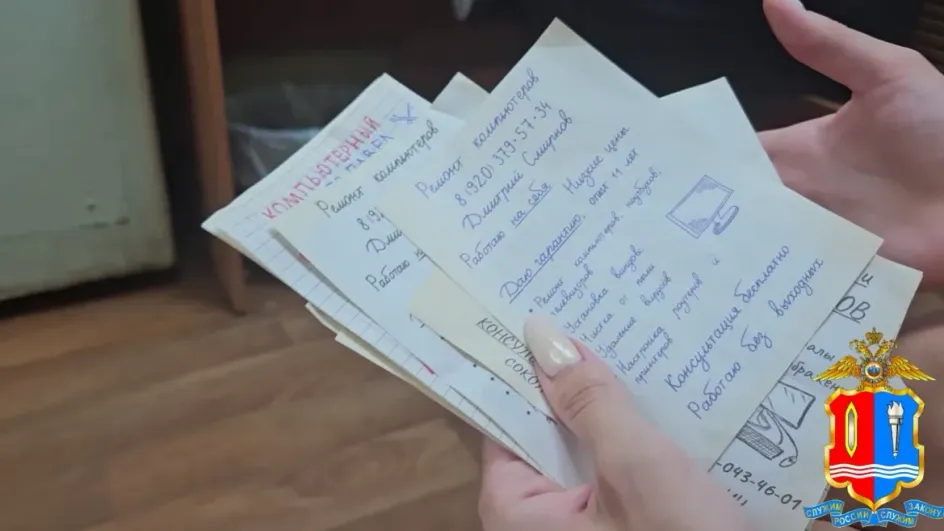 Ремонт компьютеров
8(920)379-57-34
Дмитрий Смирнов
Работаю на себя Низкие цены
Даю гарантию, опыт 11 лет
• Ремонт компьютеров, ноутбуков,
телевизоров
Установка виндовс
Чистка от пыли
Удаление вирусов
Настройка роутеров и
принтеров
Консультация бесплатно
Работаю без выходных
КОМПЬЮТЕРНЫЙ
Ремонт компьютеров
8(92
Дми
Работаю на
КОНСУЛЬ
СОКО
ОВ
-043-46-01
СЛУЖИМ РОССИИ СЛУЖИМ ЗАКОНУ